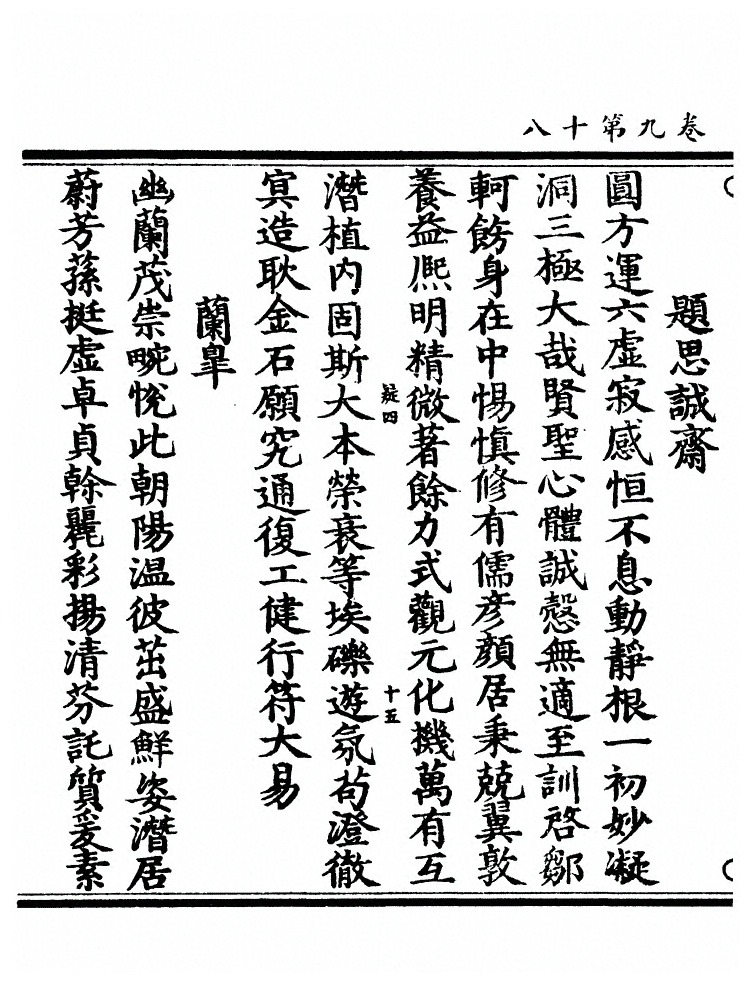 卷九第十八
題思誠齋
圓方運六虛寂感恒不息動靜根一初妙凝
洞三極大哉賢聖心體誠慤無適至訓啓鄒
軻飭身在中惕愼修有儒彥顏居秉兢翼敦
養益熈明精微著餘力式觀元化機萬有互
疑四
十五
潛植内固斯大本榮衰等埃礫遊氛苟澄徹
㝠造耿金石願究通復工健行符大易
蘭臯
幽蘭茂崇畹恱此朝陽温彼茁盛鮮姿潛居
蔚芳蓀挺虛卓貞榦麗彩揚清芬託質爰素